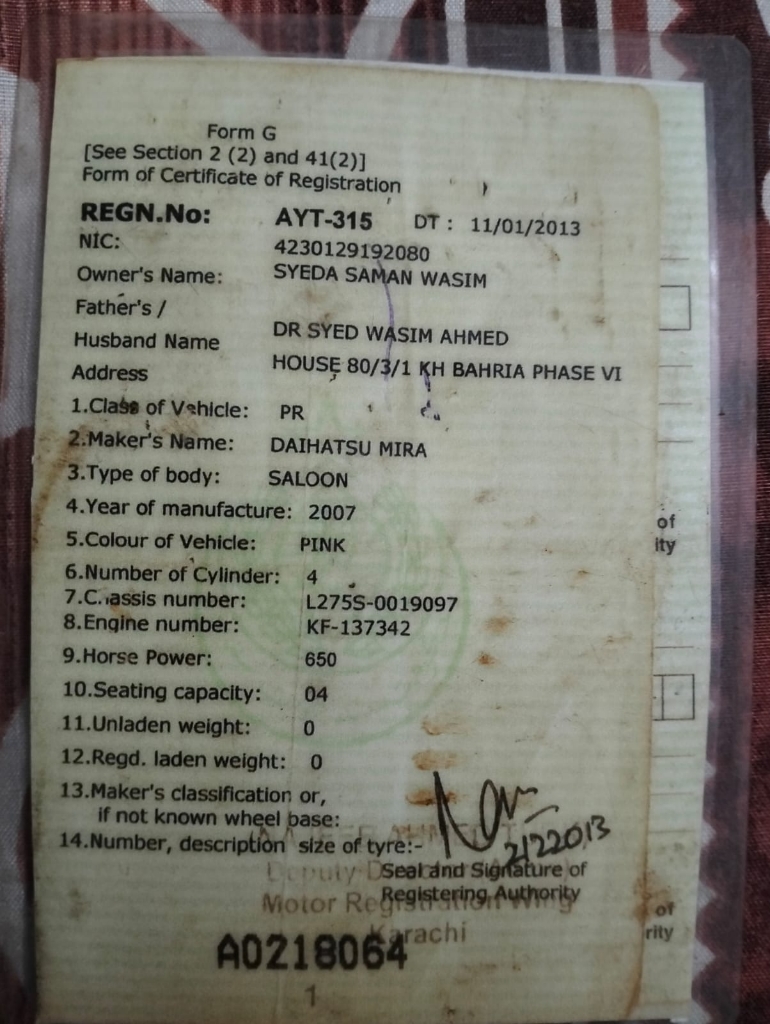 Form G
[See Section 2 (2) and 41(2)]
Form of Certificate of Registration
REGN.No: AYT-315 DT : 11/01/2013
NIC: 4230129192080
Owner's Name: SYEDA SAMAN WASIM
Father's /
Husband Name DR SYED WASIM AHMED
Address HOUSE 80/3/1 KH BAHRIA PHASE VI
1.Class of Vehicle: PR
2.Maker's Name: DAIHATSU MIRA
3.Type of body: SALOON
4.Year of manufacture: 2007
5.Colour of Vehicle: PINK
of
ity
6.Number of Cylinder: 4
7.Chassis number: L275S-0019097
8.Engine number: KF-137342
9.Horse Power: 650
10.Seating capacity: 04
11.Unladen weight: 0
12.Regd. laden weight: 0
13.Maker's classification or,
if not known wheel base:
14.Number, description size of tyre:-
Seal and Signature of
Registering Authority
Deputy
Motor Registration Wing
Karachi
of
rity
A0218064
1